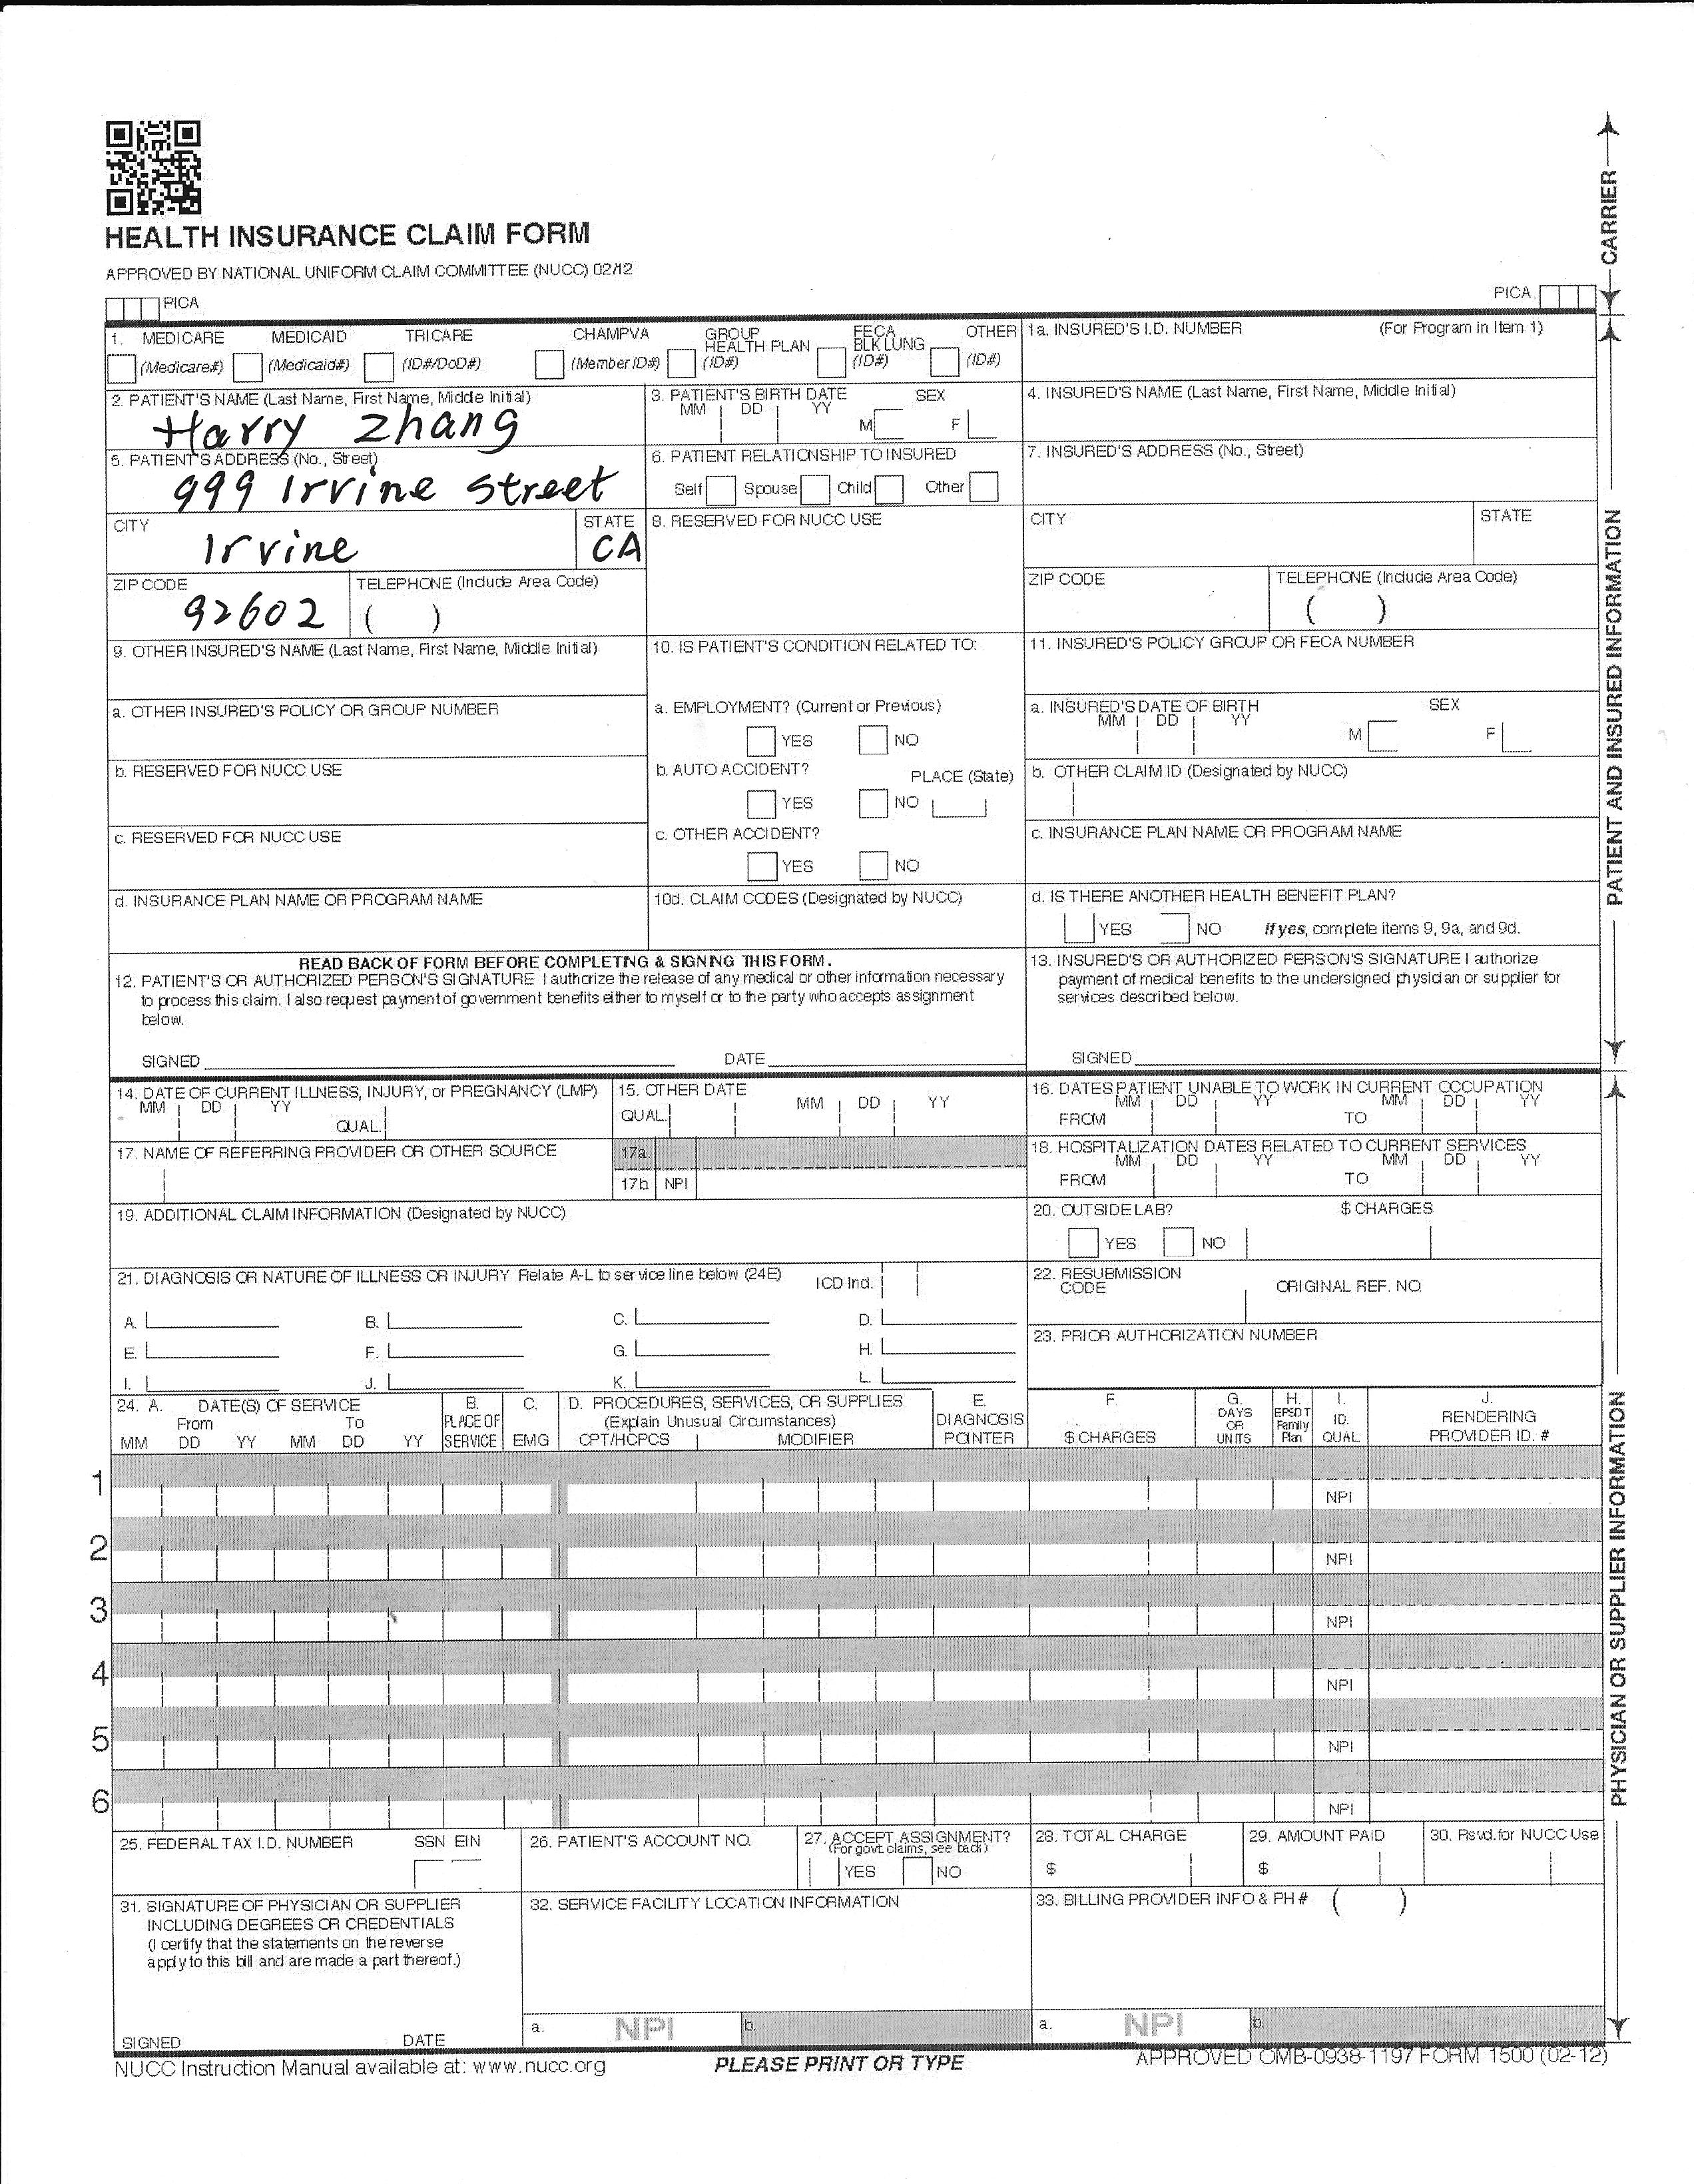 HEALTH INSURANCE CLAIM FORM
APPROVED BY NATIONAL UNIFORM CLAIM COMMITTEE (NUCC) 02/12
PICA
PICA
CARRIER
1. MEDICARE MEDICAID TRICARE CHAMPVA GROUP HEALTH PLAN FECA BLK LUNG OTHER
(Medicare#) (Medicaid#) (ID#/DoD#) (Member ID#) (ID#) (ID#) (ID#)
1a. INSURED'S I.D. NUMBER (For Program in Item 1)
2. PATIENT'S NAME (Last Name, First Name, Middle Initial)
Harry Zhang
3. PATIENT'S BIRTH DATE SEX
MM DD YY M F
4. INSURED'S NAME (Last Name, First Name, Middle Initial)
5. PATIENT'S ADDRESS (No., Street)
999 Irvine Street
6. PATIENT RELATIONSHIP TO INSURED
Self Spouse Child Other
7. INSURED'S ADDRESS (No., Street)
CITY STATE
Irvine CA
8. RESERVED FOR NUCC USE
CITY STATE
ZIP CODE TELEPHONE (Include Area Code)
92602 ( )
ZIP CODE TELEPHONE (Include Area Code)
( )
9. OTHER INSURED'S NAME (Last Name, First Name, Middle Initial)
10. IS PATIENT'S CONDITION RELATED TO:
11. INSURED'S POLICY GROUP OR FECA NUMBER
a. OTHER INSURED'S POLICY OR GROUP NUMBER
a. EMPLOYMENT? (Current or Previous)
YES NO
a. INSURED'S DATE OF BIRTH SEX
MM DD YY M F
b. RESERVED FOR NUCC USE
b. AUTO ACCIDENT? PLACE (State)
YES NO
b. OTHER CLAIM ID (Designated by NUCC)
c. RESERVED FOR NUCC USE
c. OTHER ACCIDENT?
YES NO
c. INSURANCE PLAN NAME OR PROGRAM NAME
d. INSURANCE PLAN NAME OR PROGRAM NAME
10d. CLAIM CODES (Designated by NUCC)
d. IS THERE ANOTHER HEALTH BENEFIT PLAN?
YES NO If yes, complete items 9, 9a, and 9d.
PATIENT AND INSURED INFORMATION
READ BACK OF FORM BEFORE COMPLETING & SIGNING THIS FORM.
12. PATIENT'S OR AUTHORIZED PERSON'S SIGNATURE I authorize the release of any medical or other information necessary
to process this claim. I also request payment of government benefits either to myself or to the party who accepts assignment
below.
SIGNED DATE
13. INSURED'S OR AUTHORIZED PERSON'S SIGNATURE I authorize
payment of medical benefits to the undersigned physician or supplier for
services described below.
SIGNED
14. DATE OF CURRENT ILLNESS, INJURY, or PREGNANCY (LMP)
MM DD YY QUAL.
15. OTHER DATE
QUAL. MM DD YY
16. DATES PATIENT UNABLE TO WORK IN CURRENT OCCUPATION
MM DD YY MM DD YY
FROM TO
17. NAME OF REFERRING PROVIDER OR OTHER SOURCE
17a.
17b NPI
18. HOSPITALIZATION DATES RELATED TO CURRENT SERVICES
MM DD YY MM DD YY
FROM TO
19. ADDITIONAL CLAIM INFORMATION (Designated by NUCC)
20. OUTSIDE LAB? $ CHARGES
YES NO
21. DIAGNOSIS OR NATURE OF ILLNESS OR INJURY Relate A-L to service line below (24E) ICD Ind.
A. B. C. D.
E. F. G. H.
I. J. K. L.
22. RESUBMISSION
CODE ORIGINAL REF. NO.
23. PRIOR AUTHORIZATION NUMBER
24. A. DATE(S) OF SERVICE
From To
MM DD YY MM DD YY
B.
PLACE OF
SERVICE
C.
EMG
D. PROCEDURES, SERVICES, OR SUPPLIES
(Explain Unusual Circumstances)
CPT/HCPCS MODIFIER
E.
DIAGNOSIS
POINTER
F.
$ CHARGES
G.
DAYS
OR
UNITS
H.
EPSDT
Family
Plan
I.
ID.
QUAL
J.
RENDERING
PROVIDER ID. #
1 NPI
2 NPI
3 NPI
4 NPI
5 NPI
6 NPI
PHYSICIAN OR SUPPLIER INFORMATION
25. FEDERAL TAX I.D. NUMBER SSN EIN
26. PATIENT'S ACCOUNT NO.
27. ACCEPT ASSIGNMENT?
(For govt. claims, see back)
YES NO
28. TOTAL CHARGE
$
29. AMOUNT PAID
$
30. Rsvd.for NUCC Use
31. SIGNATURE OF PHYSICIAN OR SUPPLIER
INCLUDING DEGREES OR CREDENTIALS
(I certify that the statements on the reverse
apply to this bill and are made a part thereof.)
SIGNED DATE
32. SERVICE FACILITY LOCATION INFORMATION
a. NPI b.
33. BILLING PROVIDER INFO & PH # ( )
a. NPI b.
NUCC Instruction Manual available at: www.nucc.org
PLEASE PRINT OR TYPE
APPROVED OMB-0938-1197 FORM 1500 (02-12)